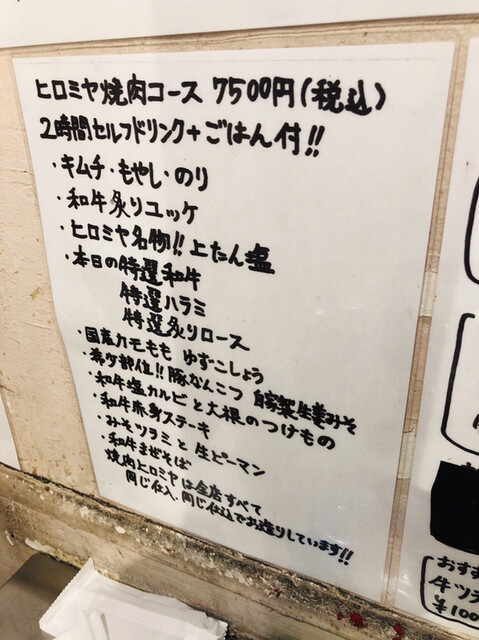 ヒロミヤ焼肉コース 7500円(税込)
2時間セルフドリンク+ごはん付!!
・キムチ・もやし・のり
・和牛炙りユッケ
・ヒロミヤ名物!! 上たん塩
・本日の特選和牛
特選ハラミ
特選炙りロース
・国産カモもも ゆずこしょう
・希少部位!! 豚なんこつ 自家製生姜みそ
・和牛塩カルビと大根のつけもの
・和牛赤身ステーキ
・みそツラミと生ピーマン
・和牛まぜそば
焼肉ヒロミヤは全店すべて
同じ仕入・同じ仕込でお造りしています!!
おすす
牛ツラ
¥100